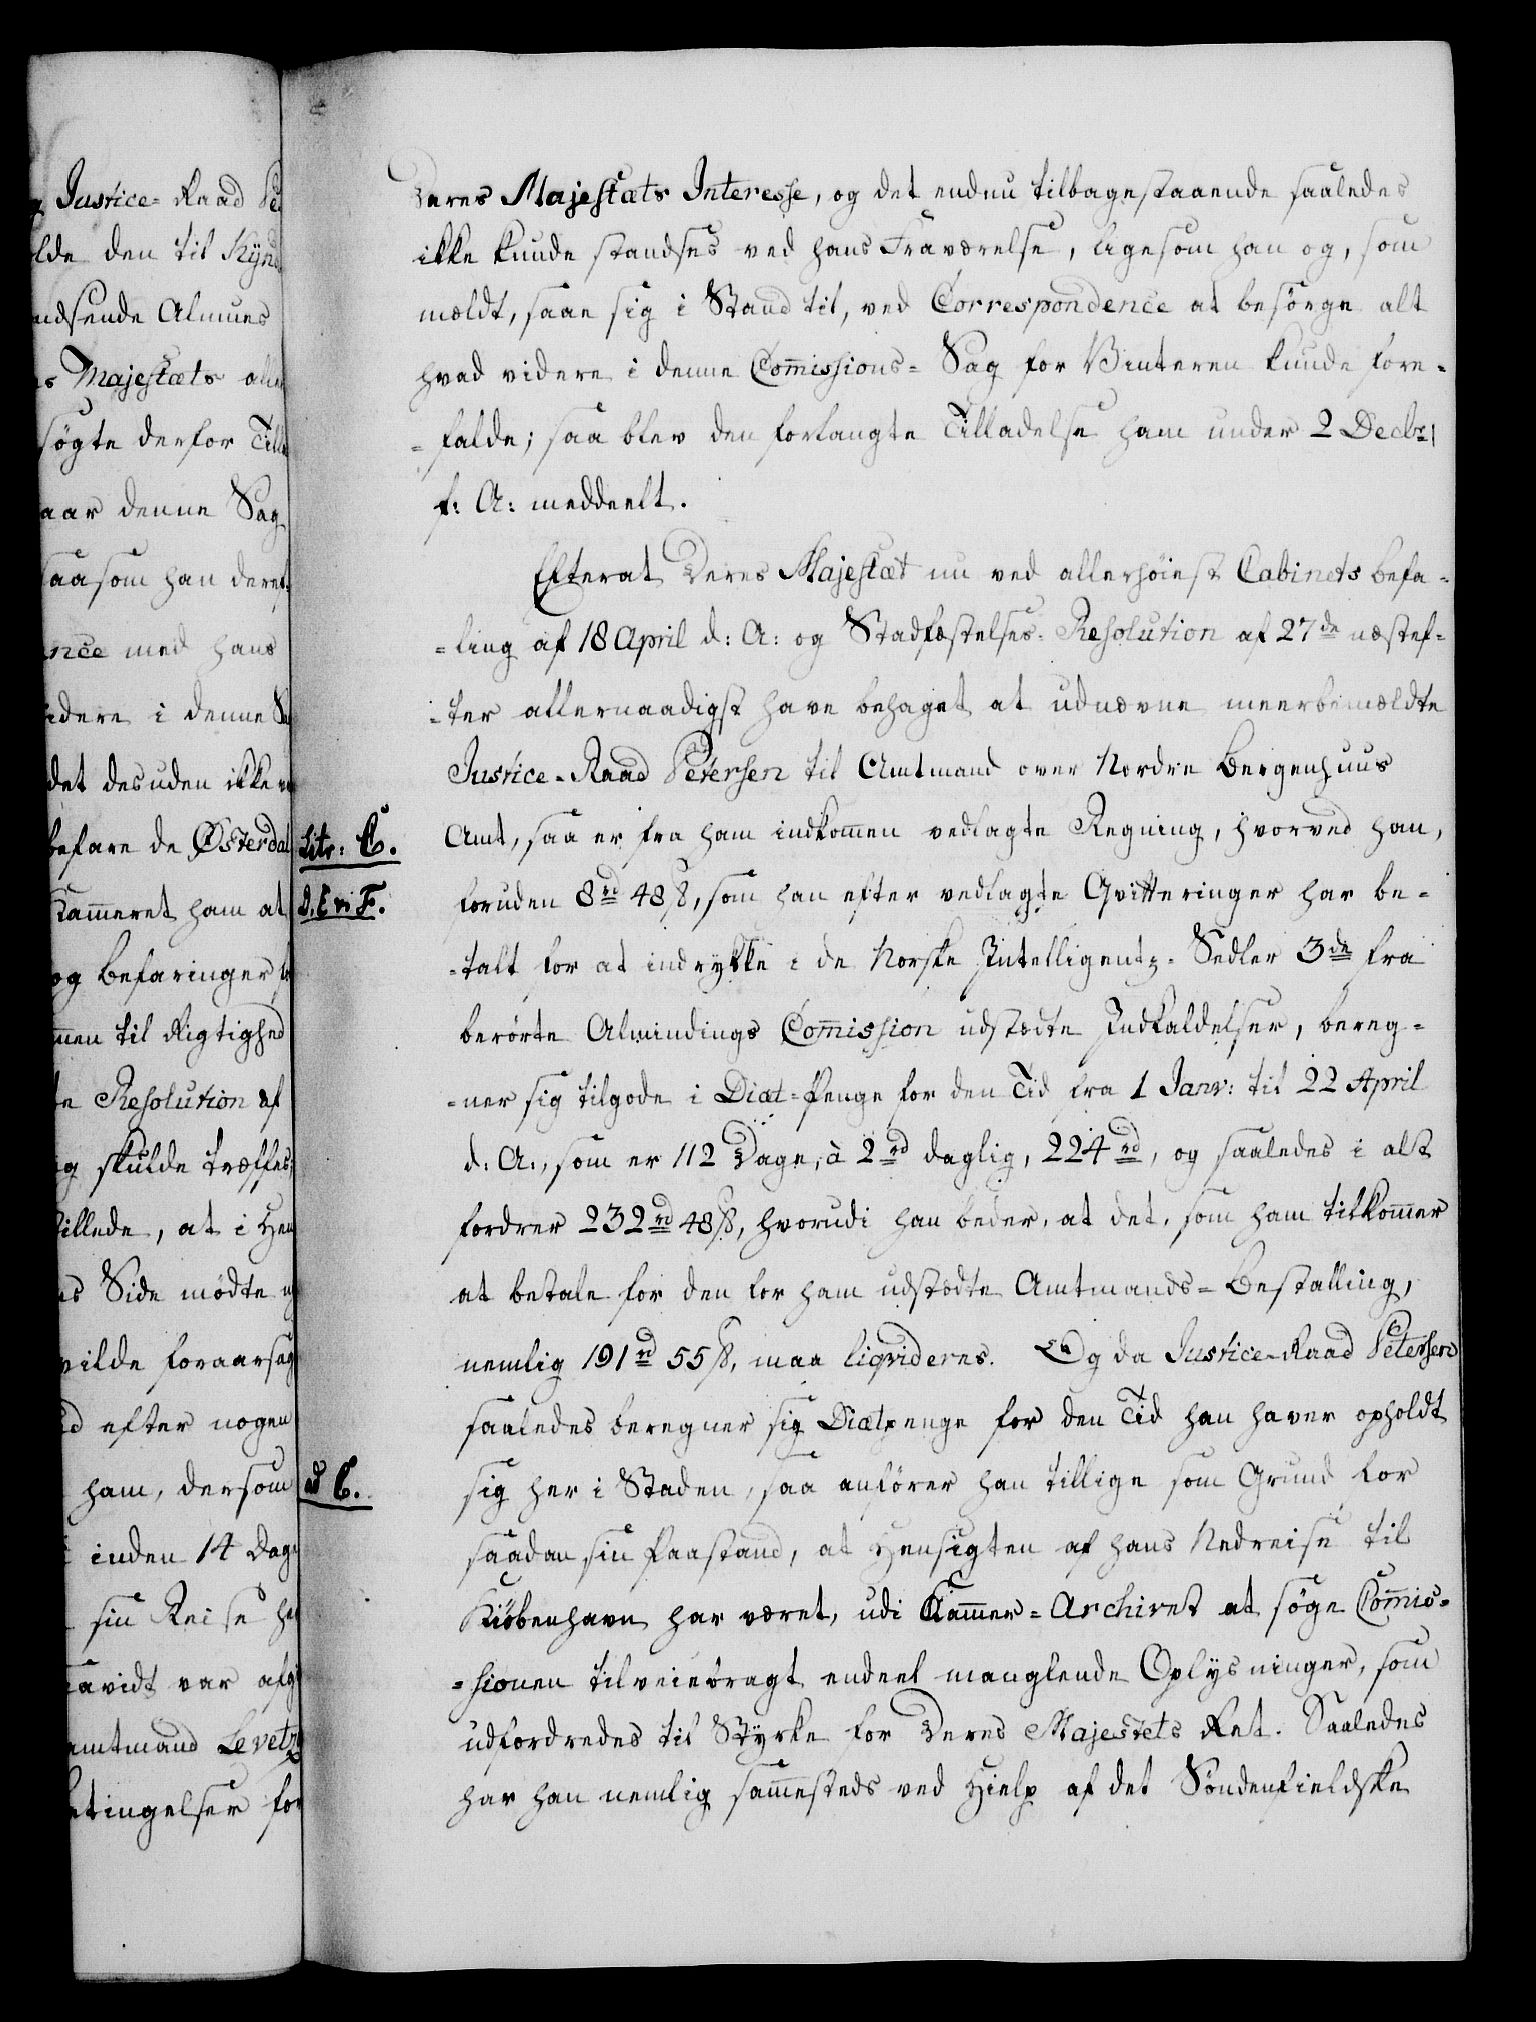 g Justice-Raad Pe
olde den til Kynd
ndsende Almues
s Majestæts aller
søgte derfor Till
aar denne Sag
saasom han deref-
nce med hans
idere i denne Sa
det desuden ikke
befare de Østerdal
Kammeret ham at
og Befaringer
men til Rigtighed
te Resolution af
g skulde træffes;
stillede, at i Hen
es Side mødte
vilde foraarsag
d efter nogen
ham, dersom
inden 14 Dag
sin Reise
saavidt var afg
amtmand Levetz
etingelser for
Deres Majestæts Interesse, og det endnu tilbagestaaende saaledes
ikke kunde standses ved hans Fraværelse, ligesom han og, som
meldt, saae sig i Stand til, ved Correspondence at besørge alt
hvad videre i denne Com̃issions-Sag for Vinteren kunde fore-
-falde; saa blev den forlangte Tilladelse ham under 2 Decbr:
f: A: meddeelt.
Efterat Deres Majestæt nu ved allerhøiest Cabinets befa-
-ling af 18 April d: A: og Stadfæstelses-Resolution af 27de næstef-
-ter allernaadigst have behaget at udnævne meerbemældte
Justice-Raad Petersen til Amtmand over Nordre Bergenhuus
Litr: C.
Amt, saa er fra ham indkom̃en vedlagte Regning, hvorved han,
D, E & F.
foruden 8rd 48ß, som han efter vedlagte Qvitteringer har be-
-talt for at indrykke i de Norske Intelligentz-Sedler 3de fra
berørte Almindings Com̃ission udstædte Indkaldelser, bereg-
-ner sig tilgode i Diæt-Penge for den Tid fra 1 Janv: til 22 April
d: A:, som er 112 Dage, à 2rd daglig, 224rd, og saaledes i alt
fordrer 232rd 48ß, hvorudi han beder, at det, som ham tilkom̃er
at betale for den for ham udstædte Amtmands-Bestalling,
nemlig 191rd 55ß, maa liqvideres. Og da Justice-Raad Petersen
saaledes beregner sig Diætpenge for den Tid han haver opholdt
ad C.
sig her i Staden, saa anfører han tillige som Grund for
saadan sin Paastand, at Hensigten af hans Nedreise til
Kiøbenhavn har været, udi Kam̃er-Archivet at søge Com̃is-
-sionen tilveiebragt endeel manglende Oplysninger, som
udfordredes til Styrke for Deres Majestets Ret. Saaledes
har han nemlig sam̃esteds ved Hielp af det Søndenfieldske